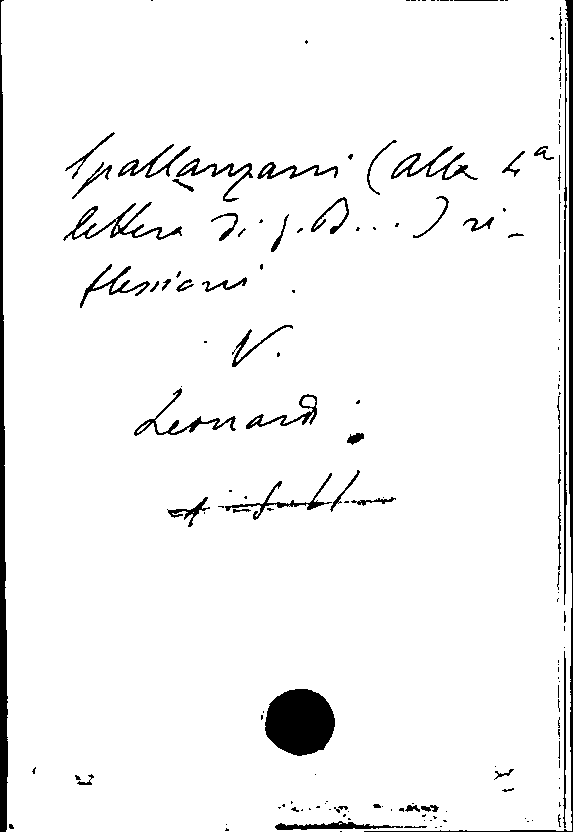 Spallanzani (alla 4ª
lettera di G. B...) ri-
flessioni.
V.
Leonardi